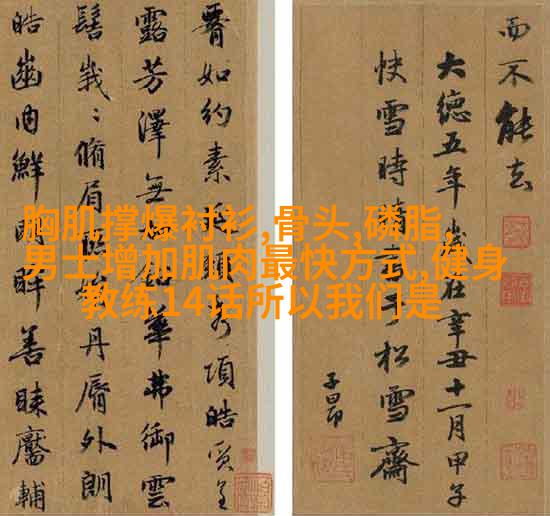 胸肌撑爆衬衫,骨头,磷脂,
男士增加肌肉最快方式,健身
教练14话所以我们是
而不能去
大德五年歲在辛丑十一月甲子
快雪時 于松雪齋
子昂
如約素 項皓質呈
露芳澤無 華弗御雲
髻峩〻脩眉 丹脣外朗
皓齒内鮮明眸善睞靨輔